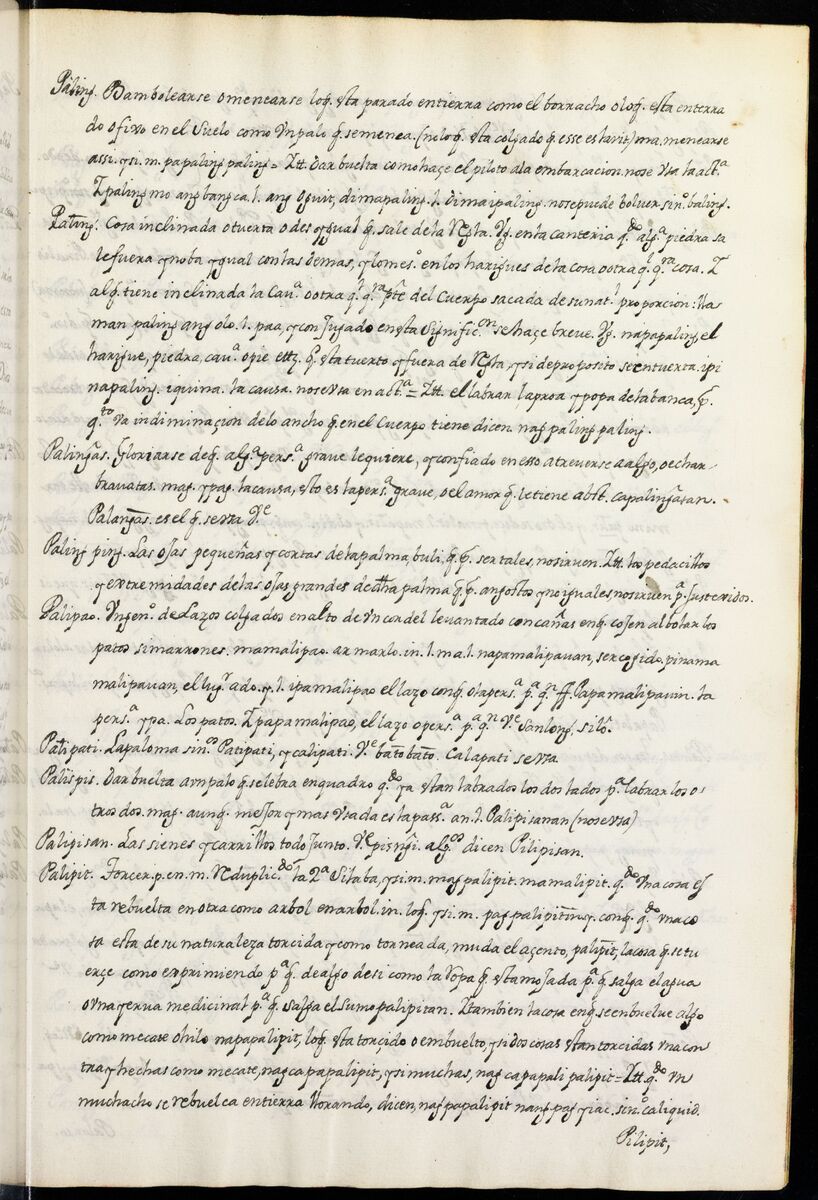 Paling. Bambolearse o menearse loq̃. esta parado en tierra como el borracho o loq̃. esta enterra
do o fixo en el suelo como vn palo q̃. se menea. (no loq̃. esta colgado q̃ esse es harit) ma. menearse
assi. y si. m. papaling paling = Itt. dar buelta como haçe el piloto a la embarcacion. no se vsa la act.ª
Ipaling mo ang bangca. l. ang oguit, dimapaling. l. dimaipaling. no se puede bolver. sin.º baling.
Paling. Cosa inclinada o tuerta o desygual q̃. sale de la Regla. Vg. en la canteria q.do alg.ª piedra sa
le fuera y no ba ygual con las demas, y lo mes.º en los harigues de la casa o otra q.l q.ra cosa. I
alq̃. tiene inclinada la cav.ª o otra q.l q.ra p.te del cuerpo sacada de su nat.l proporcion: lla
man paling ang olo. l. paa, y con jugado en esta signific.on se haçe breve. Vg. napapaling el
harigue, piedra, cav.ª o pie ettz. q̃. esta tuerto y fuera de Regla, y si de proposito se entuerta. ipi
napaling. iquina. la causa. no se vsa en act.ª = Itt. el labrar la proa y popa de la banca, q̃.
q.to va en diminuçion de lo ancho q̃. en el cuerpo tiene dicen. nag paling paling.
Palingas. Gloriarse de q̃. alg.ª pers.ª grave le quiere, y confiado en esso atreverse a algo, o echar
bravatas. mag. ypag. la causa, esto es la pers.ª grave, o el amor q̃. le tiene abst. capalingasan.
Palangas. es el q̃. se vsa V.e
Paling ping. Las ojas pequeñas y cortas de la palma, buli, q̃. p. ser tales, no sirven. Itt. los pedacillos
y extremidades de las ojas grandes de dha palma q̃. p. angostos y no iguales, no sirven p.ª ser texidos.
Palipao. Yngen.º de Lazos colgados en alto de vn cordel levantado con cañas en q̃. cojen al bolar los
patos simarrones. mamalipao. armarlo. in. l. ma. l. napamalipauan, ser cogido. pinama
malipauan, el lug.r ado. y. l. ipamalipao el lazo con q̃. o la pers.ª p.ª q.n ff. Papamalipauin. la
pers.ª ypa. Los patos. Ipapamalipao, el lazo o pers.ª p.ª q.n V.e Sanlong. silo.
Patipati. La paloma sin.os Patipati, y calipati. V.e batobato. Calapati se vsa
Palispis. Dar buelta a vn palo q̃. se labra en quadro q.do ya estan labrados los dos lados p.ª labrar los o
tros dos. mag. aunq̃. mejor y mas vsada es la pass.ª an. l. Palipisanan (no se vsa)
Palipisan. Las sienes y carrillos todo junto. V.e pisngi. alg.os dicen Pilipisan.
Palipit. Forcer. p. en. m. Reduplic.do la 2.ª silaba, y si. m. mag palipit. mamalipit. q.do vna cosa es
ta rebuelta en otra como arbol en arbol. in. loq̃. y si. m. pag palipitin y. con q̃. q.do vna co
sa esta de su naturaleza torcida y como torneada, muda el açento, palipit, la cosa q̃. se tu
erçe como exprimiendo p.ª q̃. de algo de si como la ropa q̃. esta mojada p.ª q̃. salga el agua
o vna yerua medicinal p.ª q̃. salga el sumo palipitan. I tambien la cosa en q̃. se enbuelue algo
como mecate o hilo napapalipit, loq̃. esta torçido o embuelto, y si dos cosas estan torcidas vna con
tra y hechas como mecate, nagcapapalipit, y si muchas, nagcapapali palipit = Itt. q.do vn
muchacho se rebuelca en tierra llorando, dicen, nag papalipit nang pag yiac. sin.º caliquid.
Pilipit,